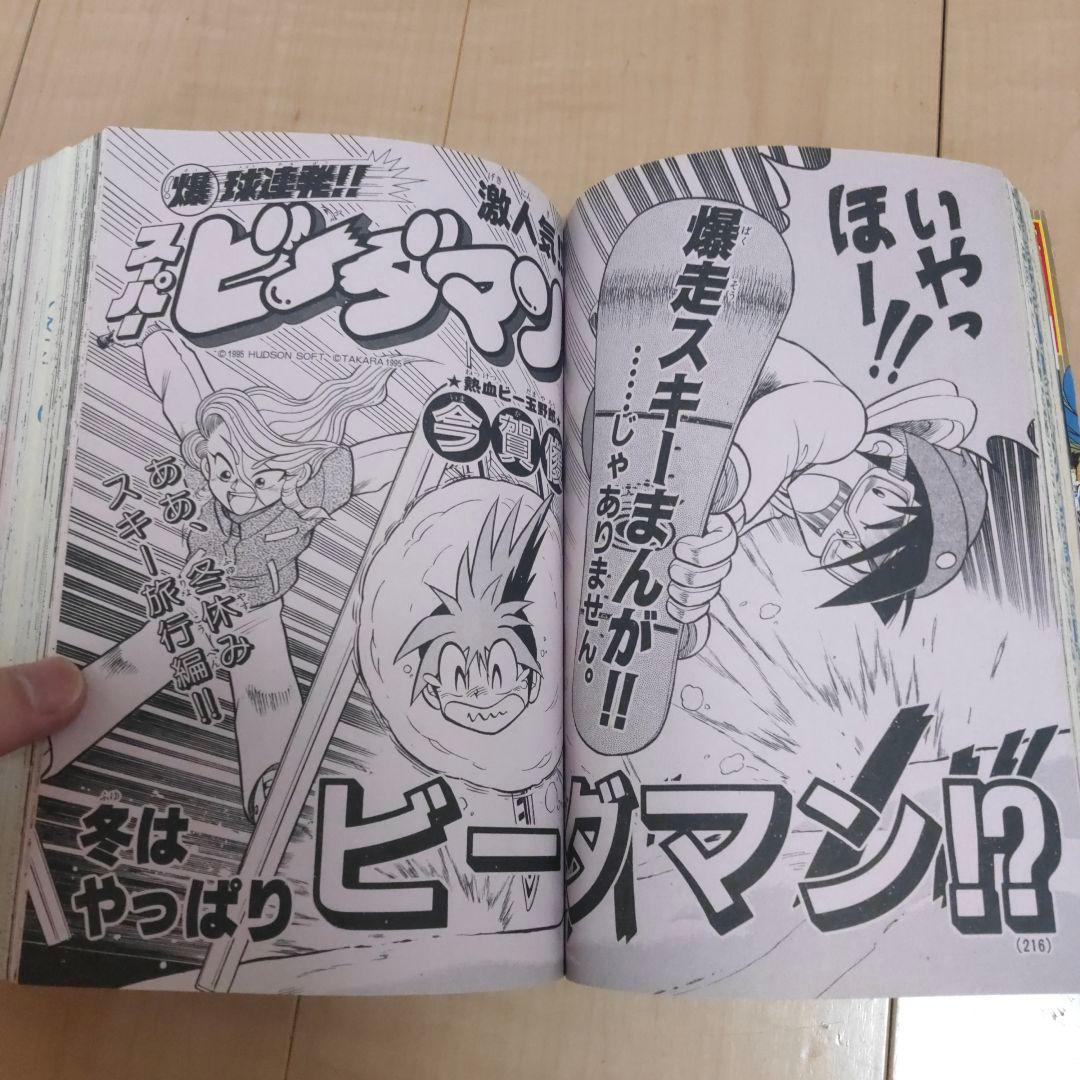 いやっ
ほー!!
爆走スキーまんが!!
……じゃありません。
爆球連発!!
スーパー
ビーダマン
激人気
©1995 HUDSON SOFT, ©TAKARA 1995
★熱血ビー玉野
今賀
ああ、冬休み
スキー旅行編!!
冬は
やっぱり
ビーダマン!?
(216)